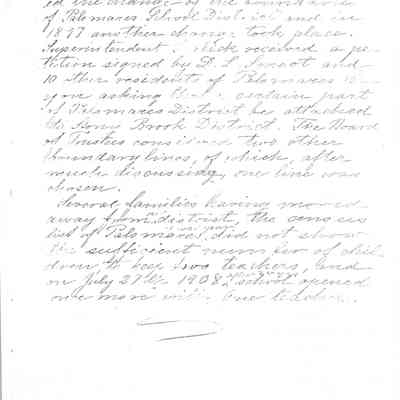 ed the changes of the boundaries
of Palomares School District and in
1897 another change took place.
Superintendent which received a pe-
tition signed by D. S. Smoot and
10 other residents of Palomares
asking that a certain part
of Palomares District be attached
to Stony Brook District. The Board
of Trustees considered two other
boundary lines, of which, after
much discussing, one line was
chosen.
Several families having moved
away from district, the census
list of Palomares, did not show
the sufficient number of chil-
dren to keep two teachers, and
on July 27th 1908 school opened
once more with one teacher.